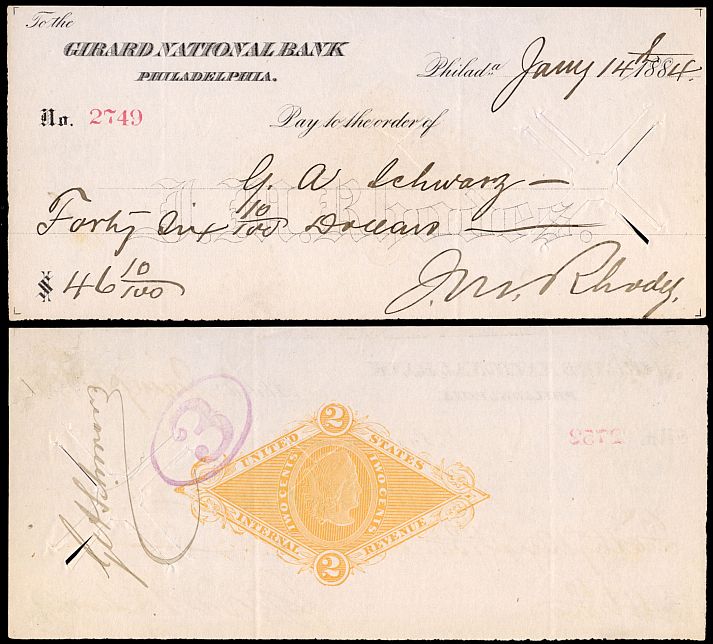 To the
GIRARD NATIONAL BANK
PHILADELPHIA.
Philad.a Jany 14th 1884.
No. 2749
Pay to the order of
G. A. Schwarz —
J. M. Rhodes.
Forty Six 10/100 Dollars —
$ 46 10/100
J. M. Rhodes.
3
2
UNITED STATES
TWO CENTS TWO CENTS
INTERNAL REVENUE
2
2752